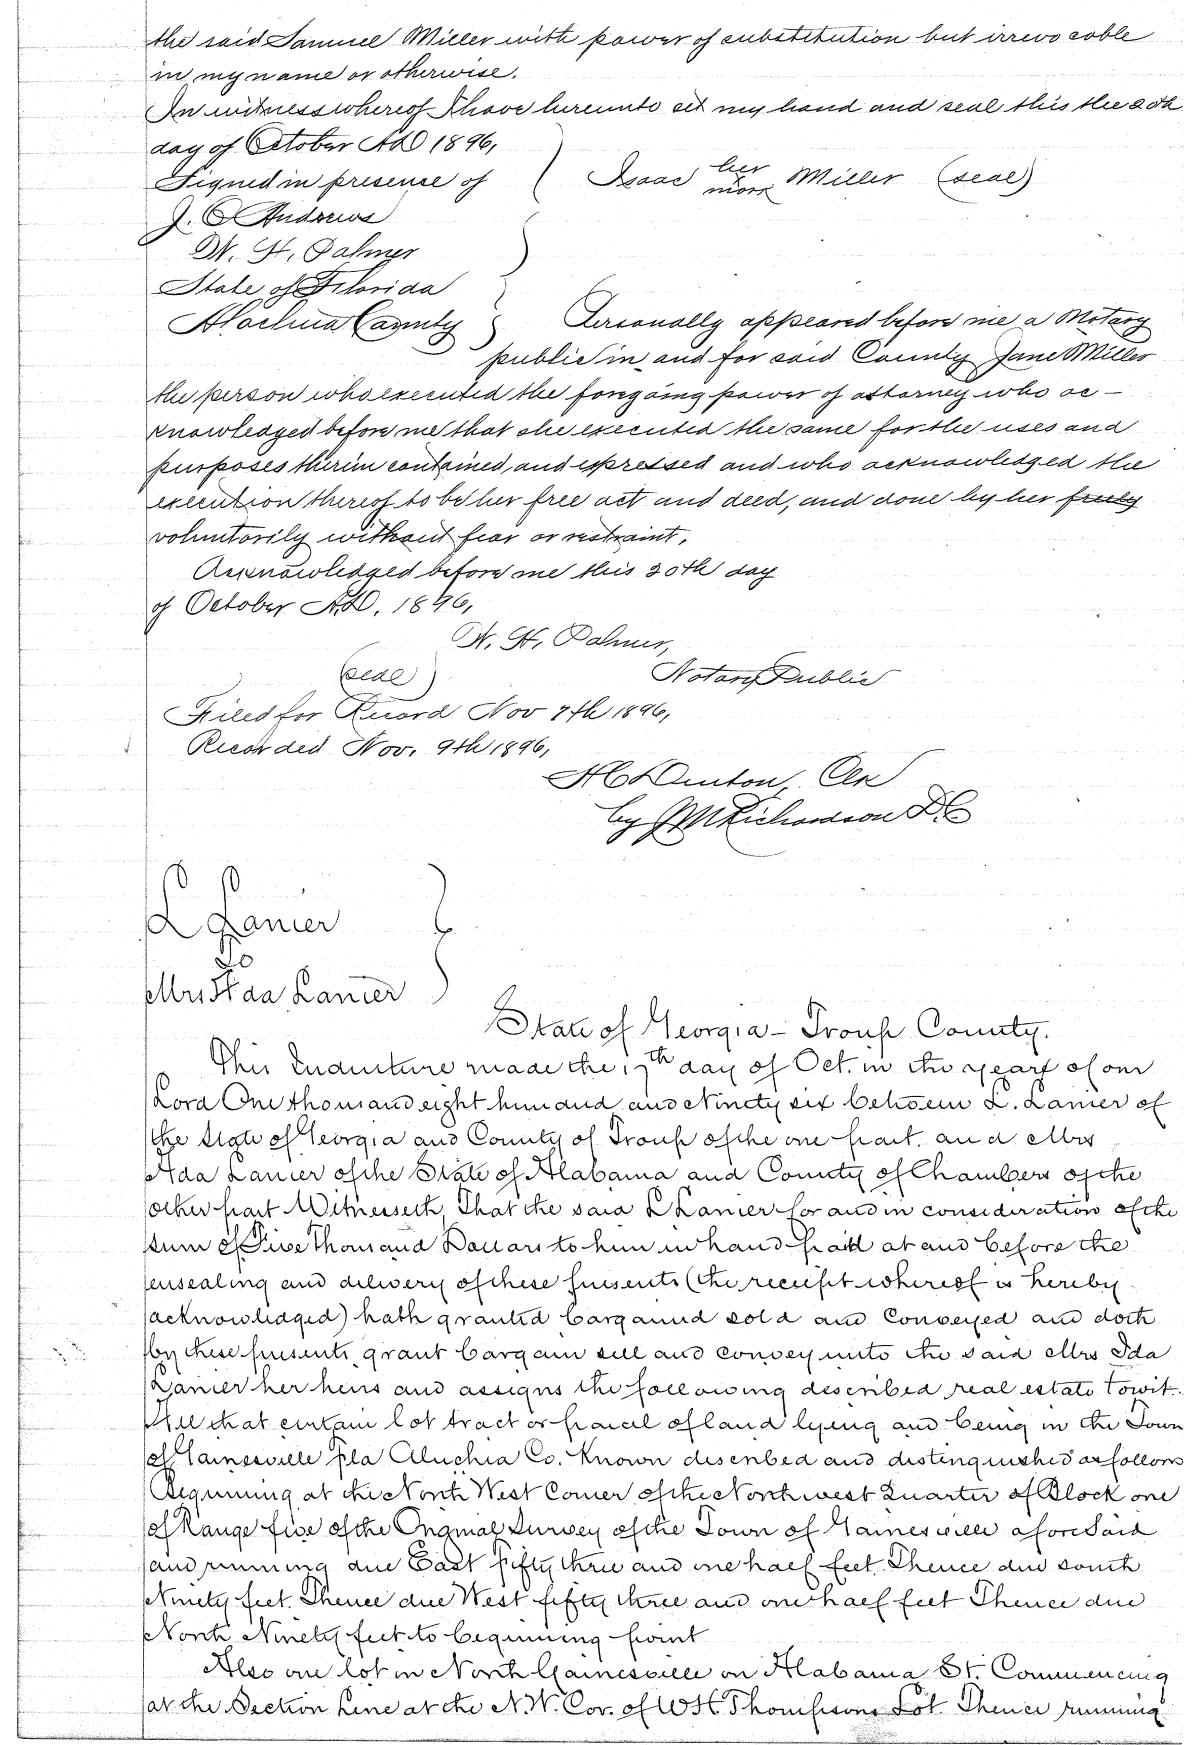 the said Samuel Miller with power of substitution but irrevocable
in my name or otherwise.
In witness whereof I have hereunto set my hand and seal this the 20th
day of October AD 1896,
Signed in presence of ( Isaac her mark Miller (seal)
J. O Andrews
W. H. Palmer
State of Florida
Alachua County Personally appeared before me a Notary
public in and for said County Jane Miller
the person who executed the foregoing power of attorney who ac-
knowledged before me that she executed the same for the uses and
purposes therein contained, and expressed and who acknowledged the
execution thereof to be her free act and deed, and done by her freely
voluntarily without fear or restraint,
Acknowledged before me this 20th day
of October A.D. 1896,
W. H. Palmer,
(seal) Notary Public
Filed for Record Nov 7th 1896,
Recorded Nov. 9th 1896,
H C Denton, Clk
by J M Richardson D.C
L Lanier
To
Mrs Ada Lanier
State of Georgia - Troup County.
This Indenture made the 17th day of Oct. in the year of our
Lord One thousand eight hundred and Ninety six between L. Lanier of
the State of Georgia and County of Troup of the one part. and Mrs
Ada Lanier of the State of Alabama and County of Chambers of the
other part Witnesseth, That the said L Lanier for and in consideration of the
sum of Five Thousand Dollars to him in hand paid at and before the
ensealing and delivery of these presents (the receipt whereof is hereby
acknowledged) hath granted bargained sold and Conveyed and doth
by these presents grant bargain sell and convey unto the said Mrs Ida
Lanier her heirs and assigns the following described real estate towit.
All that certain lot tract or parcel of land lying and being in the Town
of Gainesville Fla Aluchia Co. Known described and distinguished as follows
Beginning at the North West Corner of the Northwest Quarter of Block one
of Range five of the Original Survey of the Town of Gainesville aforesaid
and running due East fifty three and one half feet. Thence due south
Ninety feet. Thence due West fifty three and one half feet Thence due
North Ninety feet to beginning point
Also one lot in North Gainesville on Alabama St. Commencing
at the Section Line at the N.W. Cor. of W H Thompsons Lot. Thence running